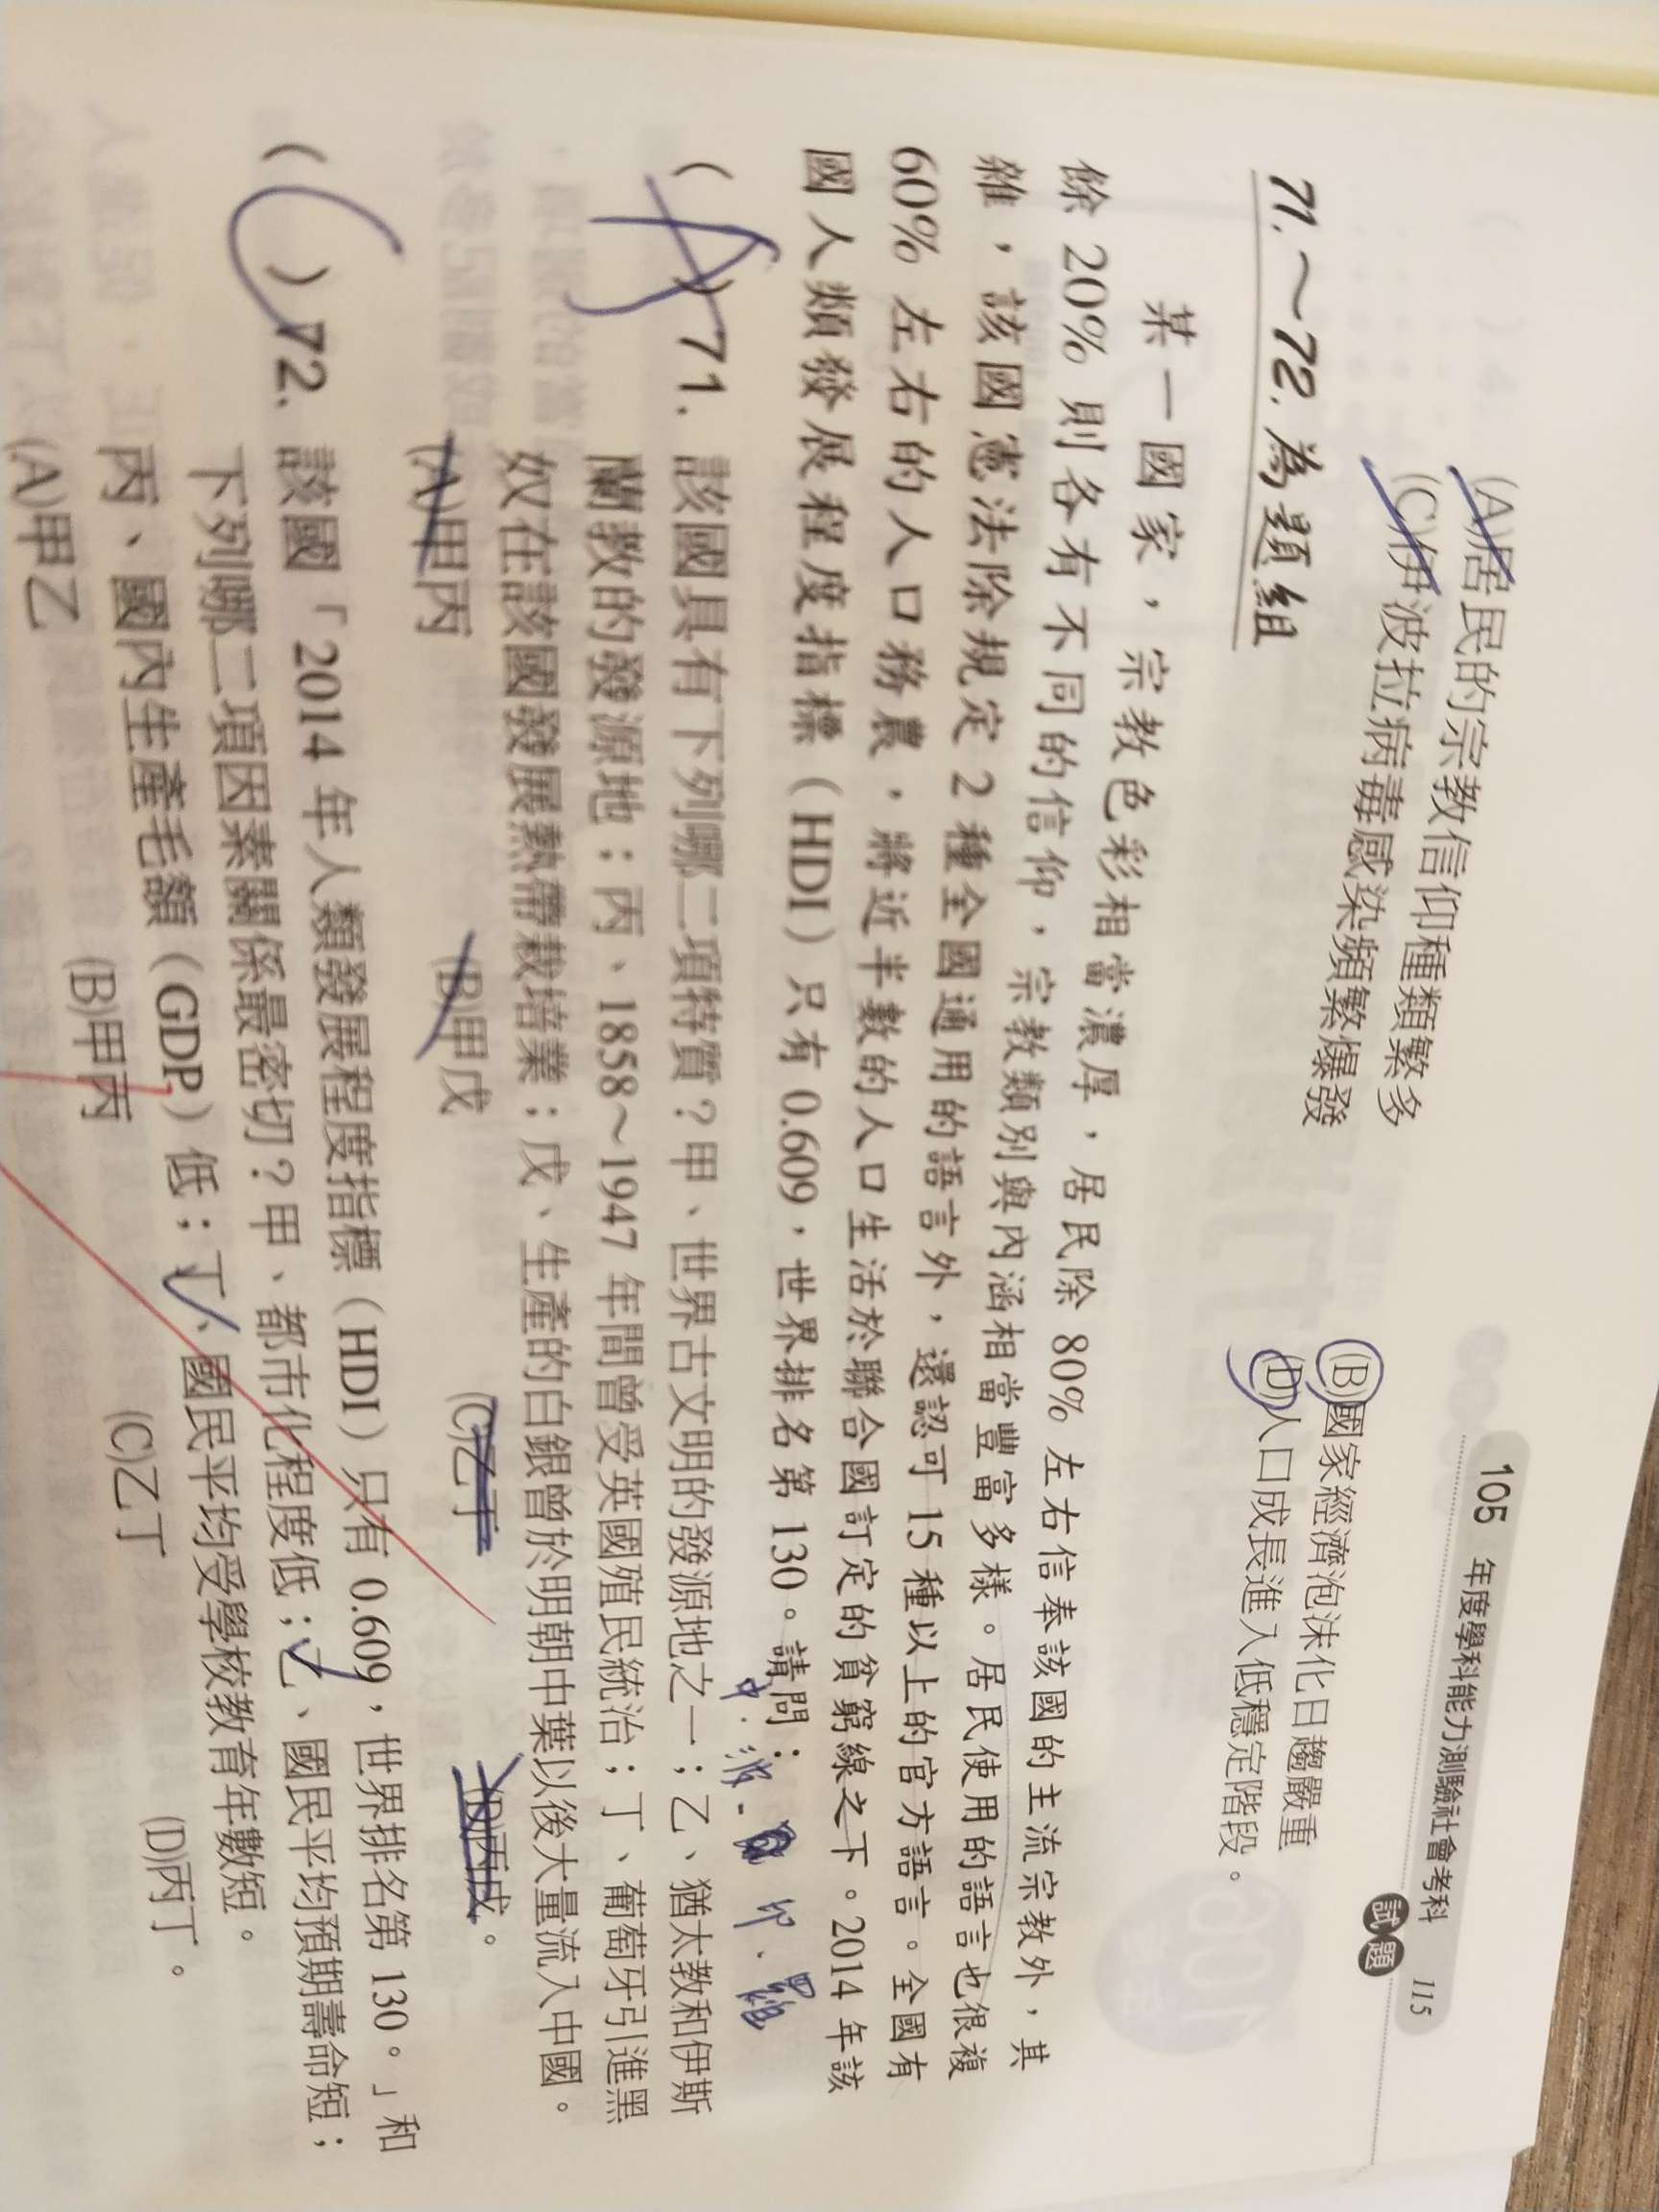 105 年度學科能力測驗社會考科 試題 115
(A)居民的宗教信仰種類繁多 (B)國家經濟泡沫化日趨嚴重
(C)伊波拉病毒感染頻繁爆發 (D)人口成長進入低穩定階段。
71.～72.為題組
某一國家，宗教色彩相當濃厚，居民除 80% 左右信奉該國的主流宗教外，其
餘 20% 則各有不同的信仰，宗教類別與內涵相當豐富多樣。居民使用的語言也很複
雜，該國憲法除規定 2 種全國通用的語言外，還認可 15 種以上的官方語言。全國有
60% 左右的人口務農，將近半數的人口生活於聯合國訂定的貧窮線之下。2014 年該
國人類發展程度指標（HDI）只有 0.609，世界排名第 130。請問：
( A )71. 該國具有下列哪二項特質？甲、世界古文明的發源地之一；乙、猶太教和伊斯
蘭教的發源地；丙、1858～1947 年間曾受英國殖民統治；丁、葡萄牙引進黑
奴在該國發展熱帶栽培業；戊、生產的白銀曾於明朝中葉以後大量流入中國。
(A)甲丙 (B)甲戊 (C)乙丁 (D)丙戊。
( C )72. 該國「2014 年人類發展程度指標（HDI）只有 0.609，世界排名第 130。」和
下列哪二項因素關係最密切？甲、都市化程度低；乙、國民平均預期壽命短；
丙、國內生產毛額（GDP）低；丁、國民平均受學校教育年數短。
(A)甲乙 (B)甲丙 (C)乙丁 (D)丙丁。